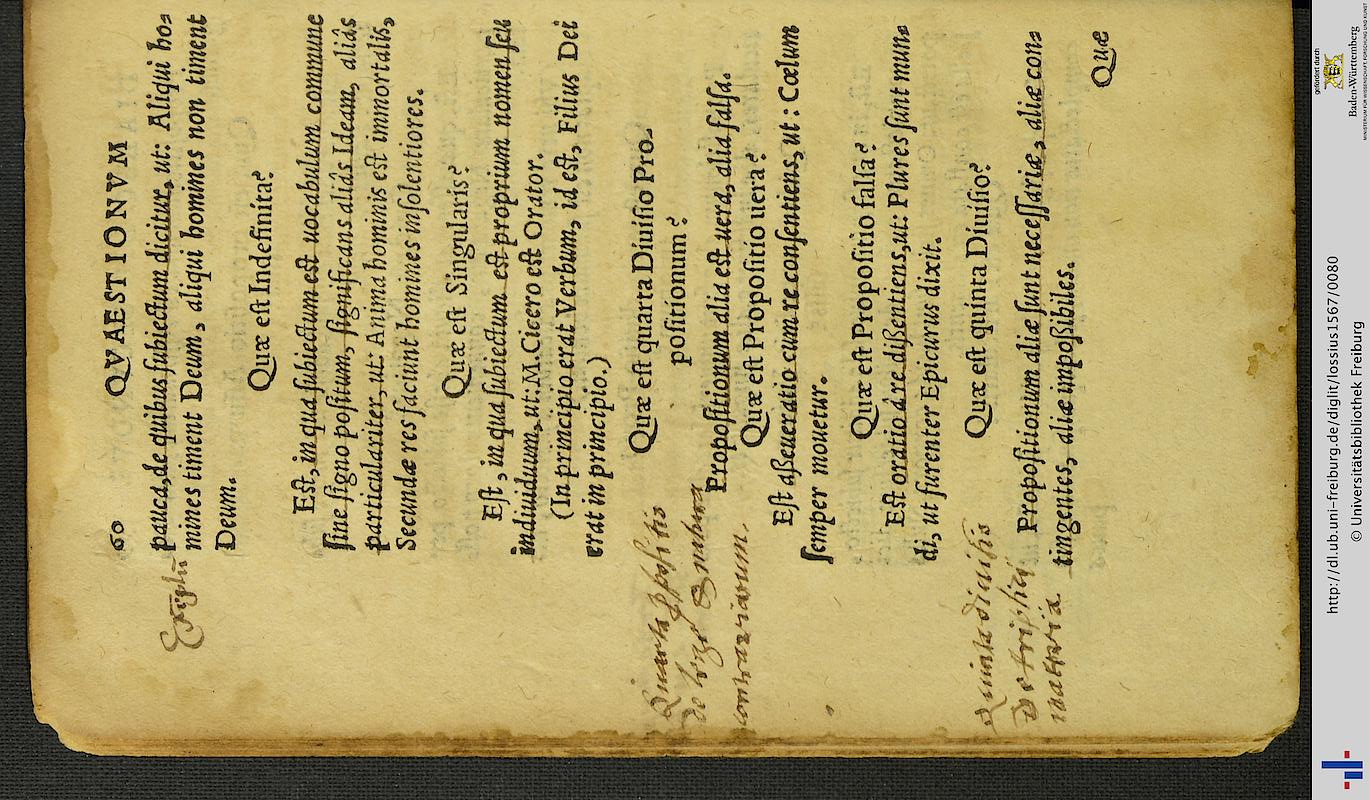 60 QVAESTIONVM
pauca, de quibus ſubiectum dicitur, ut: Aliqui ho⸗
mines timent Deum, aliqui homines non timent
Deum.
Quæ eſt Indefinita?
Eſt, in qua ſubiectum eſt uocabulum commune
ſine ſigno poſitum, ſignificans aliâs Ideam, aliâs
particulariter, ut: Anima hominis eſt immortalis,
Secundæ res faciunt homines inſolentiores.
Quæ eſt Singularis?
Eſt, in qua ſubiectum eſt proprium nomen ſeu
indiuiduum, ut: M. Cicero eſt Orator.
(In principio erat Verbum, id eſt, Filius Dei
erat in principio.)
Quæ eſt quarta Diuiſio Pro⸗
poſitionum?
Propoſitionum alia eſt uera, alia falſa.
Quæ eſt Propoſitio uera?
Eſt aßeueratio cum re conſentiens, ut: Cœlum
ſemper mouetur.
Quæ eſt Propoſitio falſa?
Est oratio à re dißentiens, ut: Plures ſunt mun⸗
di, ut furenter Epicurus dixit.
Quæ eſt quinta Diuiſio?
Propoſitionum aliæ ſunt neceſſariæ, aliæ con⸗
tingentes, aliæ impoßibiles.
Quæ
Quarta
contrariarum.
Quinta diuiſio
De triplici
materia
http://dl.ub.uni-freiburg.de/diglit/lossius1567/0080
© Universitätsbibliothek Freiburg
gefördert durch
Baden-Württemberg
MINISTERIUM FÜR WISSENSCHAFT, FORSCHUNG UND KUNST